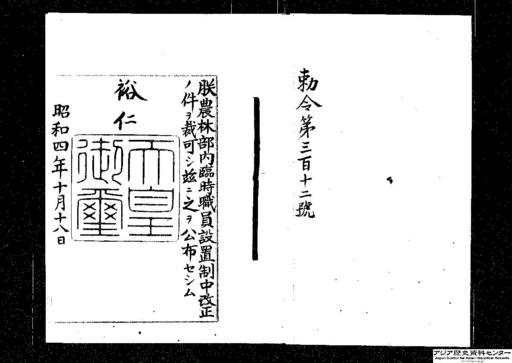 勅令第三百十二號
朕農林部内臨時職員設置制中改正
ノ件ヲ裁可シ茲ニ之ヲ公布セシム
裕仁
天皇
御璽
昭和四年十月十八日
アジア歴史資料センター
Japan Center for Asian Historical Records